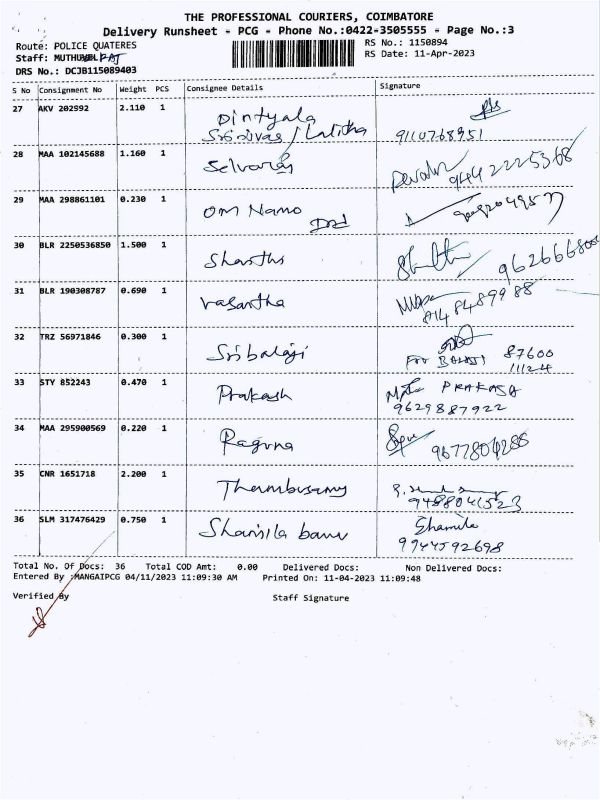 THE PROFESSIONAL COURIERS, COIMBATORE
Delivery Runsheet - PCG - Phone No.:0422-3505555 - Page No.:3
Route: POLICE QUATERES
RS No.: 1150894
Staff:
RS Date: 11-Apr-2023
DRS No.: DCJB115089403
S No Consignment No Weight PCS Consignee Details Signature
27 AKV 202992 2.110 1 Dintyala
Srinivas / Lalitha 9110768951
28 MAA 102145688 1.160 1 Selvaraj 9442225368
29 MAA 298861101 0.230 1 Om Namo
30 BLR 2250536850 1.500 1 Shanthi
31 BLR 190308787 0.690 1 Vasantha 8148489988
32 TRZ 56971846 0.300 1 Sribalaji
For Balaji 87600
11124
33 STY 852243 0.470 1 Prakash PRAKASH
9629887922
34 MAA 295900569 0.220 1 Raguna 9677804288
35 CNR 1651718 2.200 1 Thambusamy
9488041523
36 SLM 317476429 0.750 1 Sharmila banu Shamila
9944592698
Total No. Of Docs: 36 Total COD Amt: 0.00 Delivered Docs: Non Delivered Docs:
Entered By :MANGAIPCG 04/11/2023 11:09:30 AM Printed On: 11-04-2023 11:09:48
Verified By Staff Signature